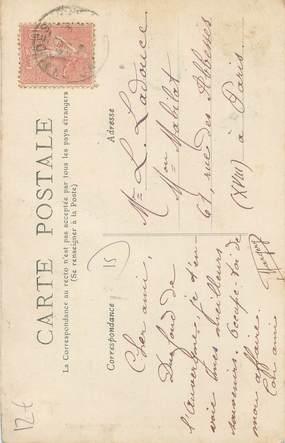 CARTE POSTALE
La Correspondance au recto n'est pas acceptée par tous les pays étrangers
(Se renseigner à la Poste)
Correspondance
Adresse
Cher ami,
Du fond de
l'Auvergne, je t'en-
voie mes meilleurs
souvenirs. Occupe-toi de
mon affaire.
Ton ami
Mr L. Ladouce
Mon Mabilat
61, rue des Abbesses
(XVIII) à Paris.
15
12€